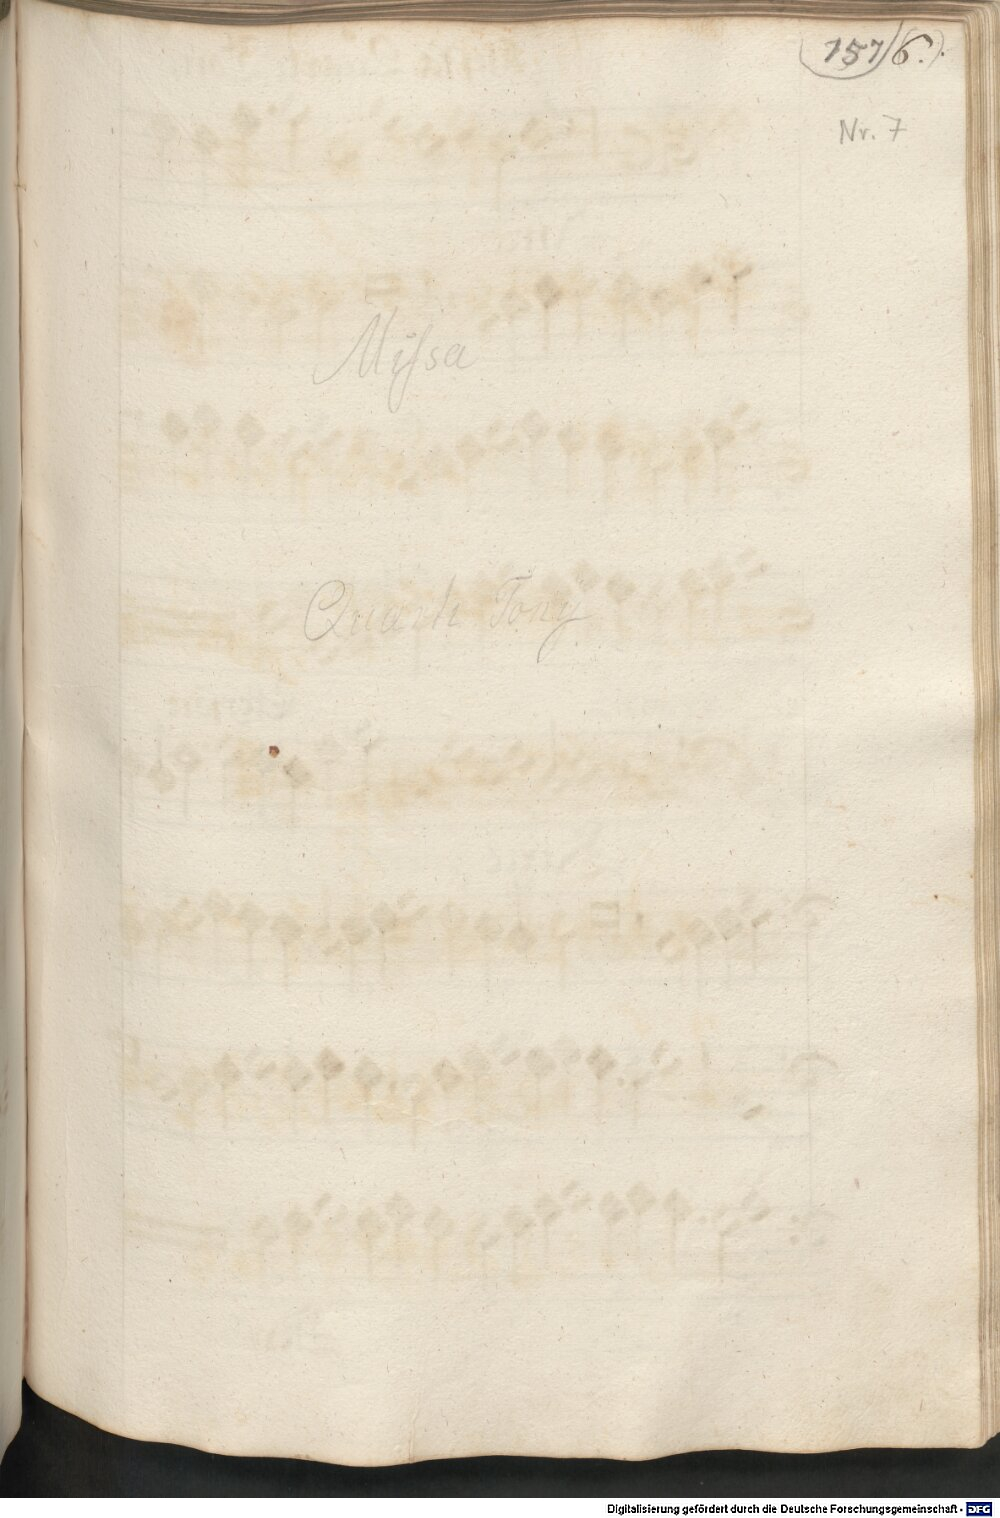 (151/6.).
Nr. 7
Missa
Quarti Tony
Digitalisierung gefördert durch die Deutsche Forschungsgemeinschaft - DFG